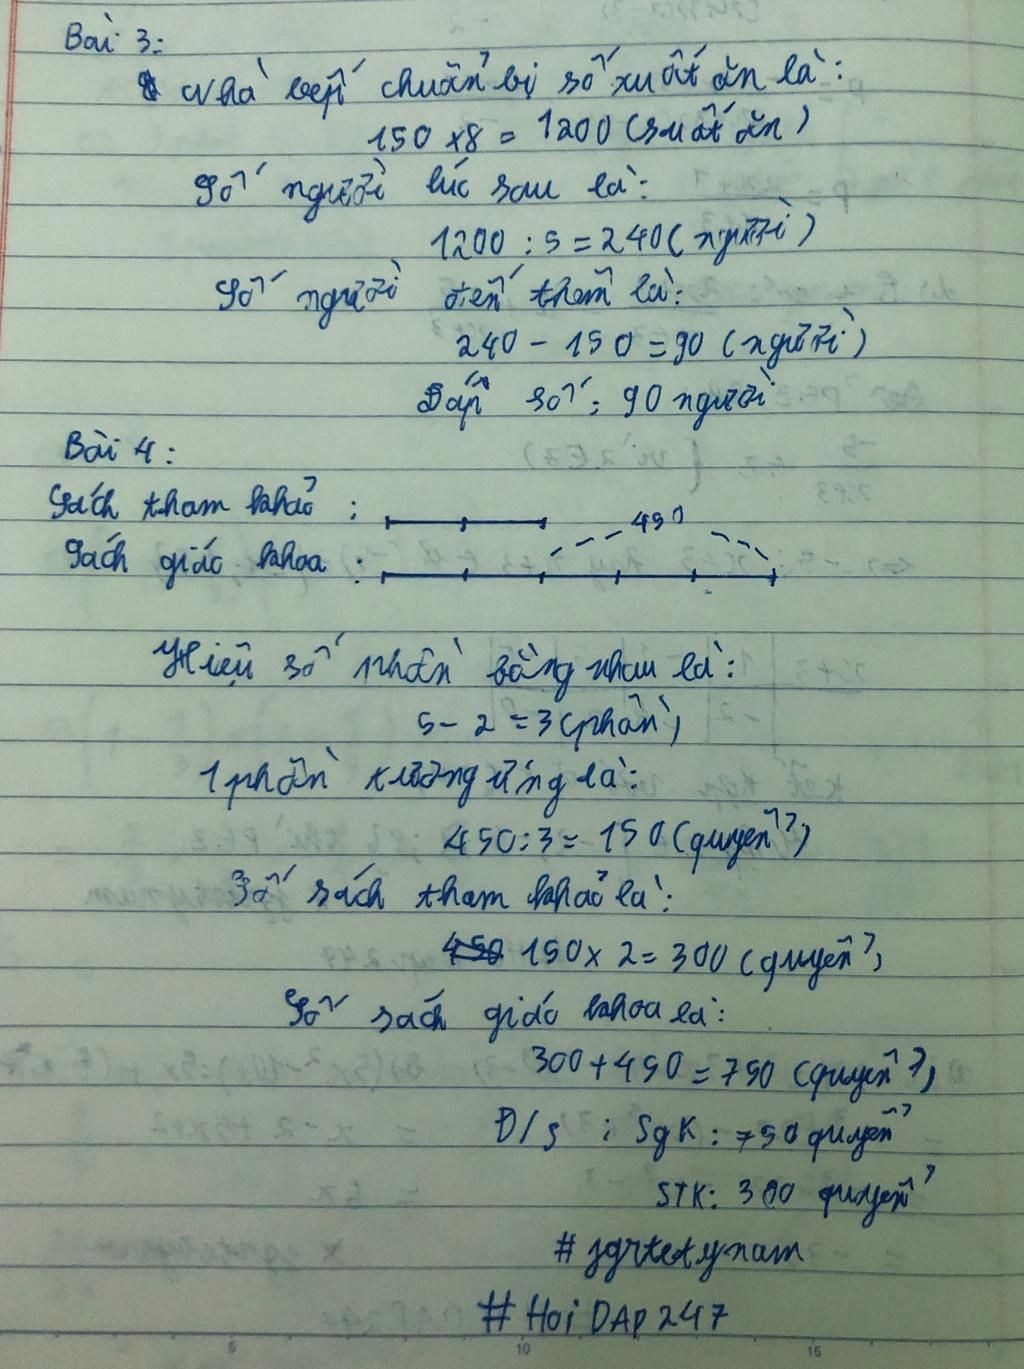 Bài 3:
Nhà bếp chuẩn bị số xuất ăn là:
150 x 8 = 1200 (suất ăn)
Số người lúc sau là:
1200 : 5 = 240 (người)
Số người đến thêm là:
240 - 150 = 90 (người)
Đáp số: 90 người
Bài 4:
Sách tham khảo :
450
Sách giáo khoa :
Hiệu số phần bằng nhau là:
5 - 2 = 3 (phần)
1 phần tương ứng là:
450 : 3 = 150 (quyển)
Số sách tham khảo là:
150 x 2 = 300 (quyển)
Số sách giáo khoa là:
300 + 450 = 750 (quyển)
Đ/s : SgK : 750 quyển
STK: 300 quyển
# Hoi DAP 247